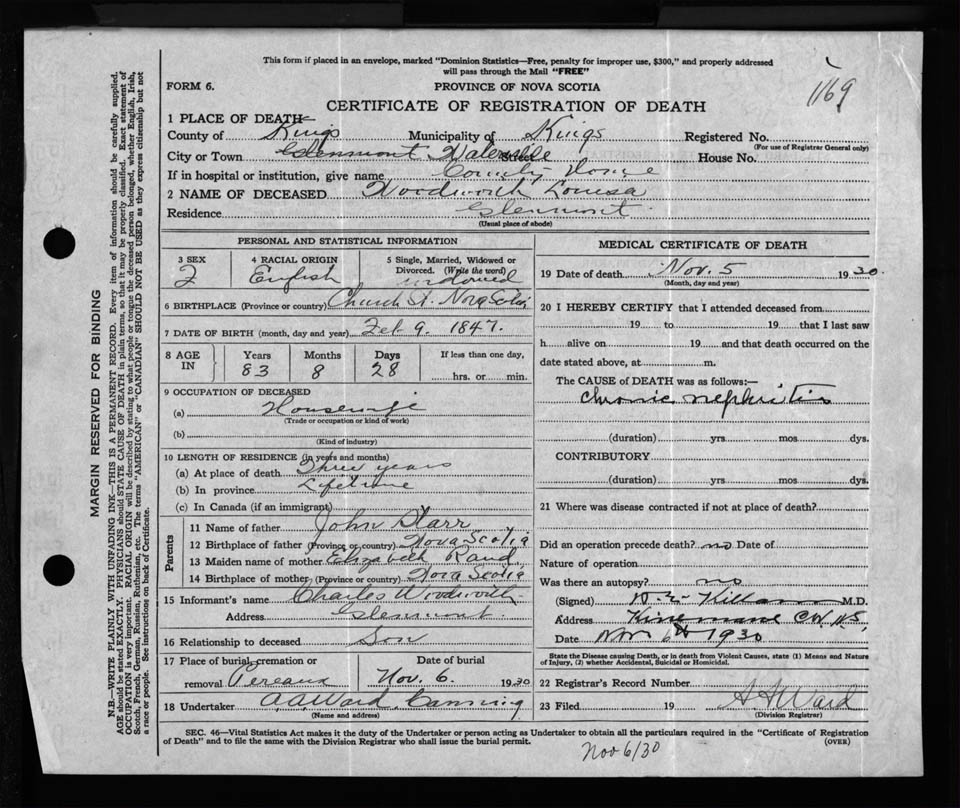 This form if placed in an envelope, marked "Dominion Statistics—Free, penalty for improper use, $300," and properly addressed
will pass through the Mail "FREE"
1169
FORM 6.
PROVINCE OF NOVA SCOTIA
CERTIFICATE OF REGISTRATION OF DEATH
1 PLACE OF DEATH—
County of Kings Municipality of Kings Registered No.
(For use of Registrar General only)
City or Town Glenmont Street House No.
If in hospital or institution, give name County
2 NAME OF DECEASED Woodworth Louisa
Residence Glenmont
(Usual place of abode)
PERSONAL AND STATISTICAL INFORMATION
3 SEX 4 RACIAL ORIGIN 5 Single, Married, Widowed or
Divorced. (Write the word)
F English widowed
6 BIRTHPLACE (Province or country) Church St. Nova Scotia
7 DATE OF BIRTH (month, day and year) Feb 9. 1847.
8 AGE IN Years Months Days If less than one day,
83 8 28 hrs. or min.
9 OCCUPATION OF DECEASED
(a) Housewife
(Trade or occupation or kind of work)
(b)
(Kind of industry)
10 LENGTH OF RESIDENCE (in years and months)
(a) At place of death Three years
(b) In province Lifetime
(c) In Canada (if an immigrant)
Parents
11 Name of father John Starr
12 Birthplace of father (Province or country) Nova Scotia
13 Maiden name of mother Elizabeth Rand
14 Birthplace of mother (Province or country) Nova Scotia
15 Informant's name Charles Woodworth
Address Glenmont.
16 Relationship to deceased Son
17 Place of burial, cremation or Date of burial
removal Pereaux Nov. 6. 1930
18 Undertaker A.A. Ward. Canning
(Name and address)
MEDICAL CERTIFICATE OF DEATH
19 Date of death Nov. 5 1930.
(Month, day and year)
20 I HEREBY CERTIFY that I attended deceased from
19 to 19 that I last saw
h alive on 19 and that death occurred on the
date stated above, at m.
The CAUSE OF DEATH was as follows:—
Chronic nephritis
(duration) yrs. mos. dys.
CONTRIBUTORY
(duration) yrs. mos. dys.
21 Where was disease contracted if not at place of death?
Did an operation precede death? no Date of
Nature of operation
Was there an autopsy? no
(Signed) Killam M.D.
Address N.S.
Date Nov 6th 1930
State the Disease causing Death, or in death from Violent Causes, state (1) Means and Nature
of Injury, (2) whether Accidental, Suicidal or Homicidal.
22 Registrar's Record Number
23 Filed 19 A A Ward
(Division Registrar)
SEC. 46—Vital Statistics Act makes it the duty of the Undertaker or person acting as Undertaker to obtain all the particulars required in the "Certificate of Registration
of Death" and to file the same with the Division Registrar who shall issue the burial permit. (OVER)
Nov 6/30
MARGIN RESERVED FOR BINDING
N.B.—WRITE PLAINLY WITH UNFADING INK—THIS IS A PERMANENT RECORD. Every item of information should be carefully supplied.
AGE should be stated EXACTLY. PHYSICIANS should STATE CAUSE OF DEATH in plain terms, so that it may be properly classified. Exact statement of
OCCUPATION is very important. RACIAL ORIGIN will be described by stating to what people or tongue the deceased person belonged, whether English, Irish,
Scotch, French, German, Russian, Ruthenian, etc. The terms "AMERICAN" or "CANADIAN" SHOULD NOT BE USED as they express citizenship but not
a race or people. See instructions on back of Certificate.